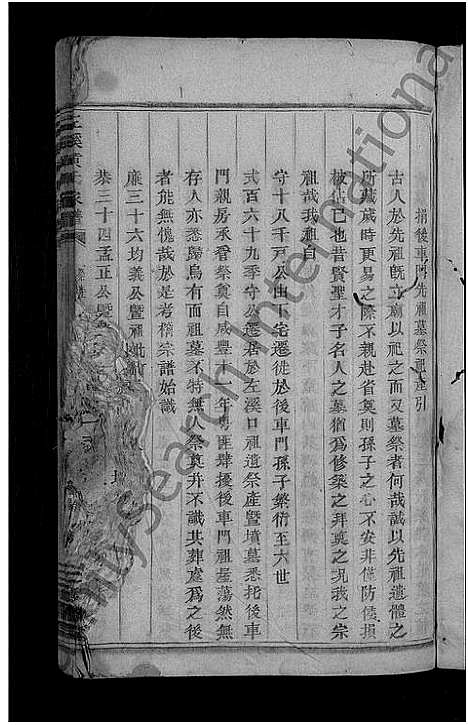 捐後車門先祖墓祭祖產引
古人於先祖旣立廟以祀之而又墓祭者何哉誠以先祖遺體之
所藏歲時更易之際不親赴省奠則孫子之心不安非僅防侵損
被佔已也昔賢聖才子名人之墓猶爲修築之拜奠之况我之宗
祖哉我祖自
守十八千河公由下宅遷徙於後車門孫子繁衍至六世
式百六十九季守公遷居於左溪口祖遺祭產曁墳墓悉托後車
門親房承看祭奠自咸豐十一年粤匪肆擾後車門祖屋蕩然無
存人亦悉歸烏有而祖墓不特無人祭奠并不識其葬處爲之後
者能無愧哉於是考稽宗譜始識
廉三十六均義公曁祖妣
恭三十四孟正公曁
mysearch International